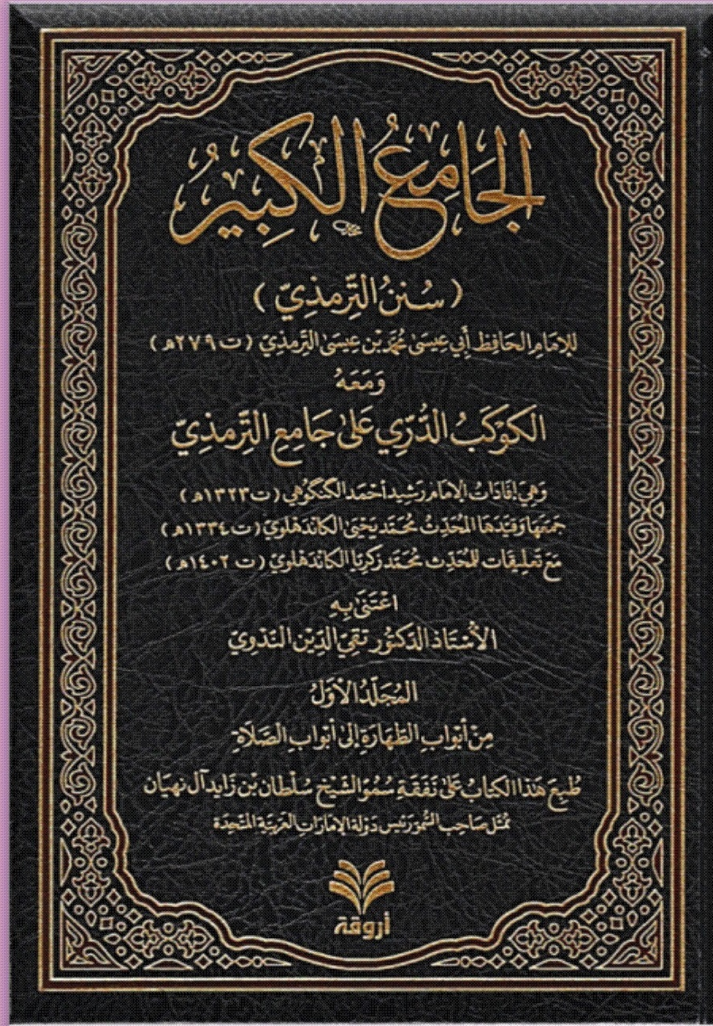 الجَامِعُ الكَبِيرُ
( سُنَنُ التِّرمذِيّ )
للإمَامِ الحَافِظِ أَبِي عِيسَىٰ مُحَمَّد بْن عِيسَىٰ التِّرمذِيّ ( ت ٢٧٩هـ )
وَمَعَهُ
الكَوْكَبُ الدُّرِّي عَلىٰ جَامِعِ التِّرمذِيّ
وَهِيَ إفَادَاتُ الإمَام رَشِيد أحْمَد الگنگوهي ( ت ١٣٢٣هـ )
جَمَعَهَا وَقَيَّدَهَا المُحَدِّثُ مُحَمَّد يَحْيَىٰ الكَانْدَهْلَوِيّ ( ت ١٣٣٤هـ )
مَعَ تَعْلِيقَات للمُحَدِّث مُحَمَّد زَكَرِيّا الكَانْدَهْلَوِيّ ( ت ١٤٠٢هـ )
اعْتَنَىٰ بِهِ
الأُسْتَاذ الدّكتُور تَقِيّ الدِّين النَّدْوِيّ
المُجَلَّدُ الأَوَّلُ
مِنْ أبْوَابِ الطَّهَارَةِ إلىٰ أبْوَابِ الصَّلَاةِ
طُبِعَ هَذَا الكِتَابُ عَلىٰ نَفَقَةِ سُمُوّ الشّيْخ سُلْطَان بْن زَايد آل نهيَان
مُمَثّل صَاحِب السُّمو رَئِيس دَوْلَة الإمَارَات العَرَبيَّة المُتّحدَة
أروقة